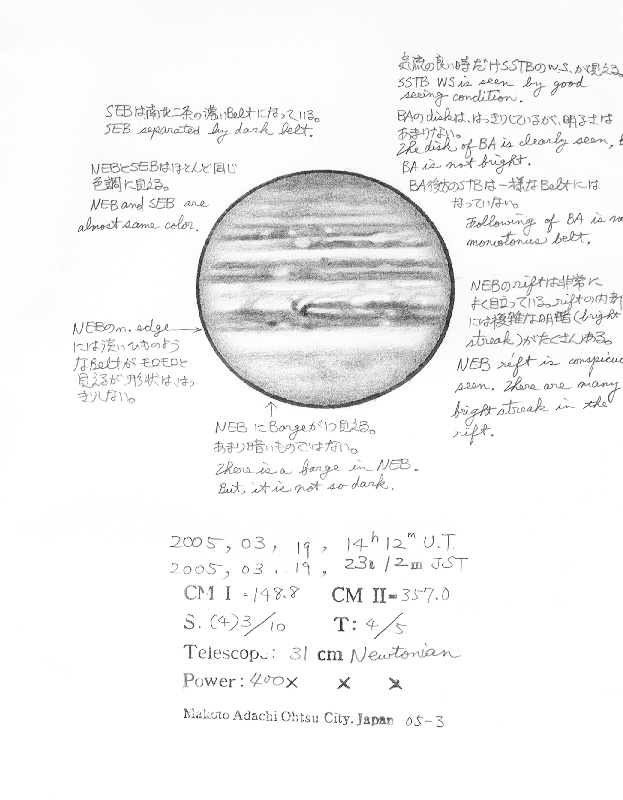 気流の良い時だけSSTBのW.S.が見える。
SSTB WS is seen by good
seeing condition.
SEBは南北二条の濃いBeltになっている。
SEB separated by dark belt.
BAのdiskは、はっきりしているが、明るさは
あまりない。
The disk of BA is clearly seen,
BA is not bright.
NEBとSEBはほとんど同じ
色調に見える。
NEB and SEB are
almost same color.
BA後方のSTBは一様なBeltには
なっていない。
Following of BA is
monotonus belt.
NEBのriftは非常に
よく目立っている。riftの内部
には複雑な明暗(bright
streak)がたくさんある。
NEB rift is
seen. There are many
bright streak in the
rift.
NEBのn. edge
には淡いひものよう
なBeltがモロモロと
見えるが、形状は、はっ
きりしない。
NEBにBargeが1つ見える。
あまり暗いものではない。
There is a barge in NEB.
But, it is not so dark.
2005, 03, 19, 14h 12m U.T.
2005, 03, 19, 23h 12m JST
CM I = 148.8 CM II = 357.0
S. (4)3/10 T: 4/5
Telescope: 31 cm Newtonian
Power: 400× × ×
Makoto Adachi Ohtsu City. Japan 05-3